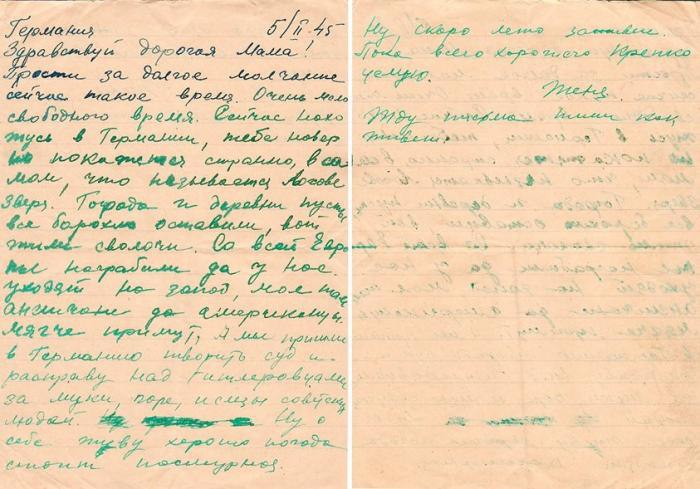 Германия 5/II 45
Здравствуй дорогая Мама!
Прости за долгое молчание
сейчас такое время. Очень мало
свободного времени. Сейчас нахо
жусь в Германии, тебе навер
но покажется странно, в са
мом, что называется логове
зверя. Города и деревни пусты
все барахло оставили, вот
жили сволочи. Со всей Евро
пы награбили да у нас.
уходят на запад, мол там
англичане да американцы
мягче примут, А мы пришли
в Германию творить суд и
расправу над Гитлеровцами
за муки, горе, и слезы советских
людей. Ну о
себе живу хорошо погода
стоит пасмурная.
Ну, скоро лето
Пока всего хорошего Крепко
целую.
Женя.
Жду письма пиши как
живеш.